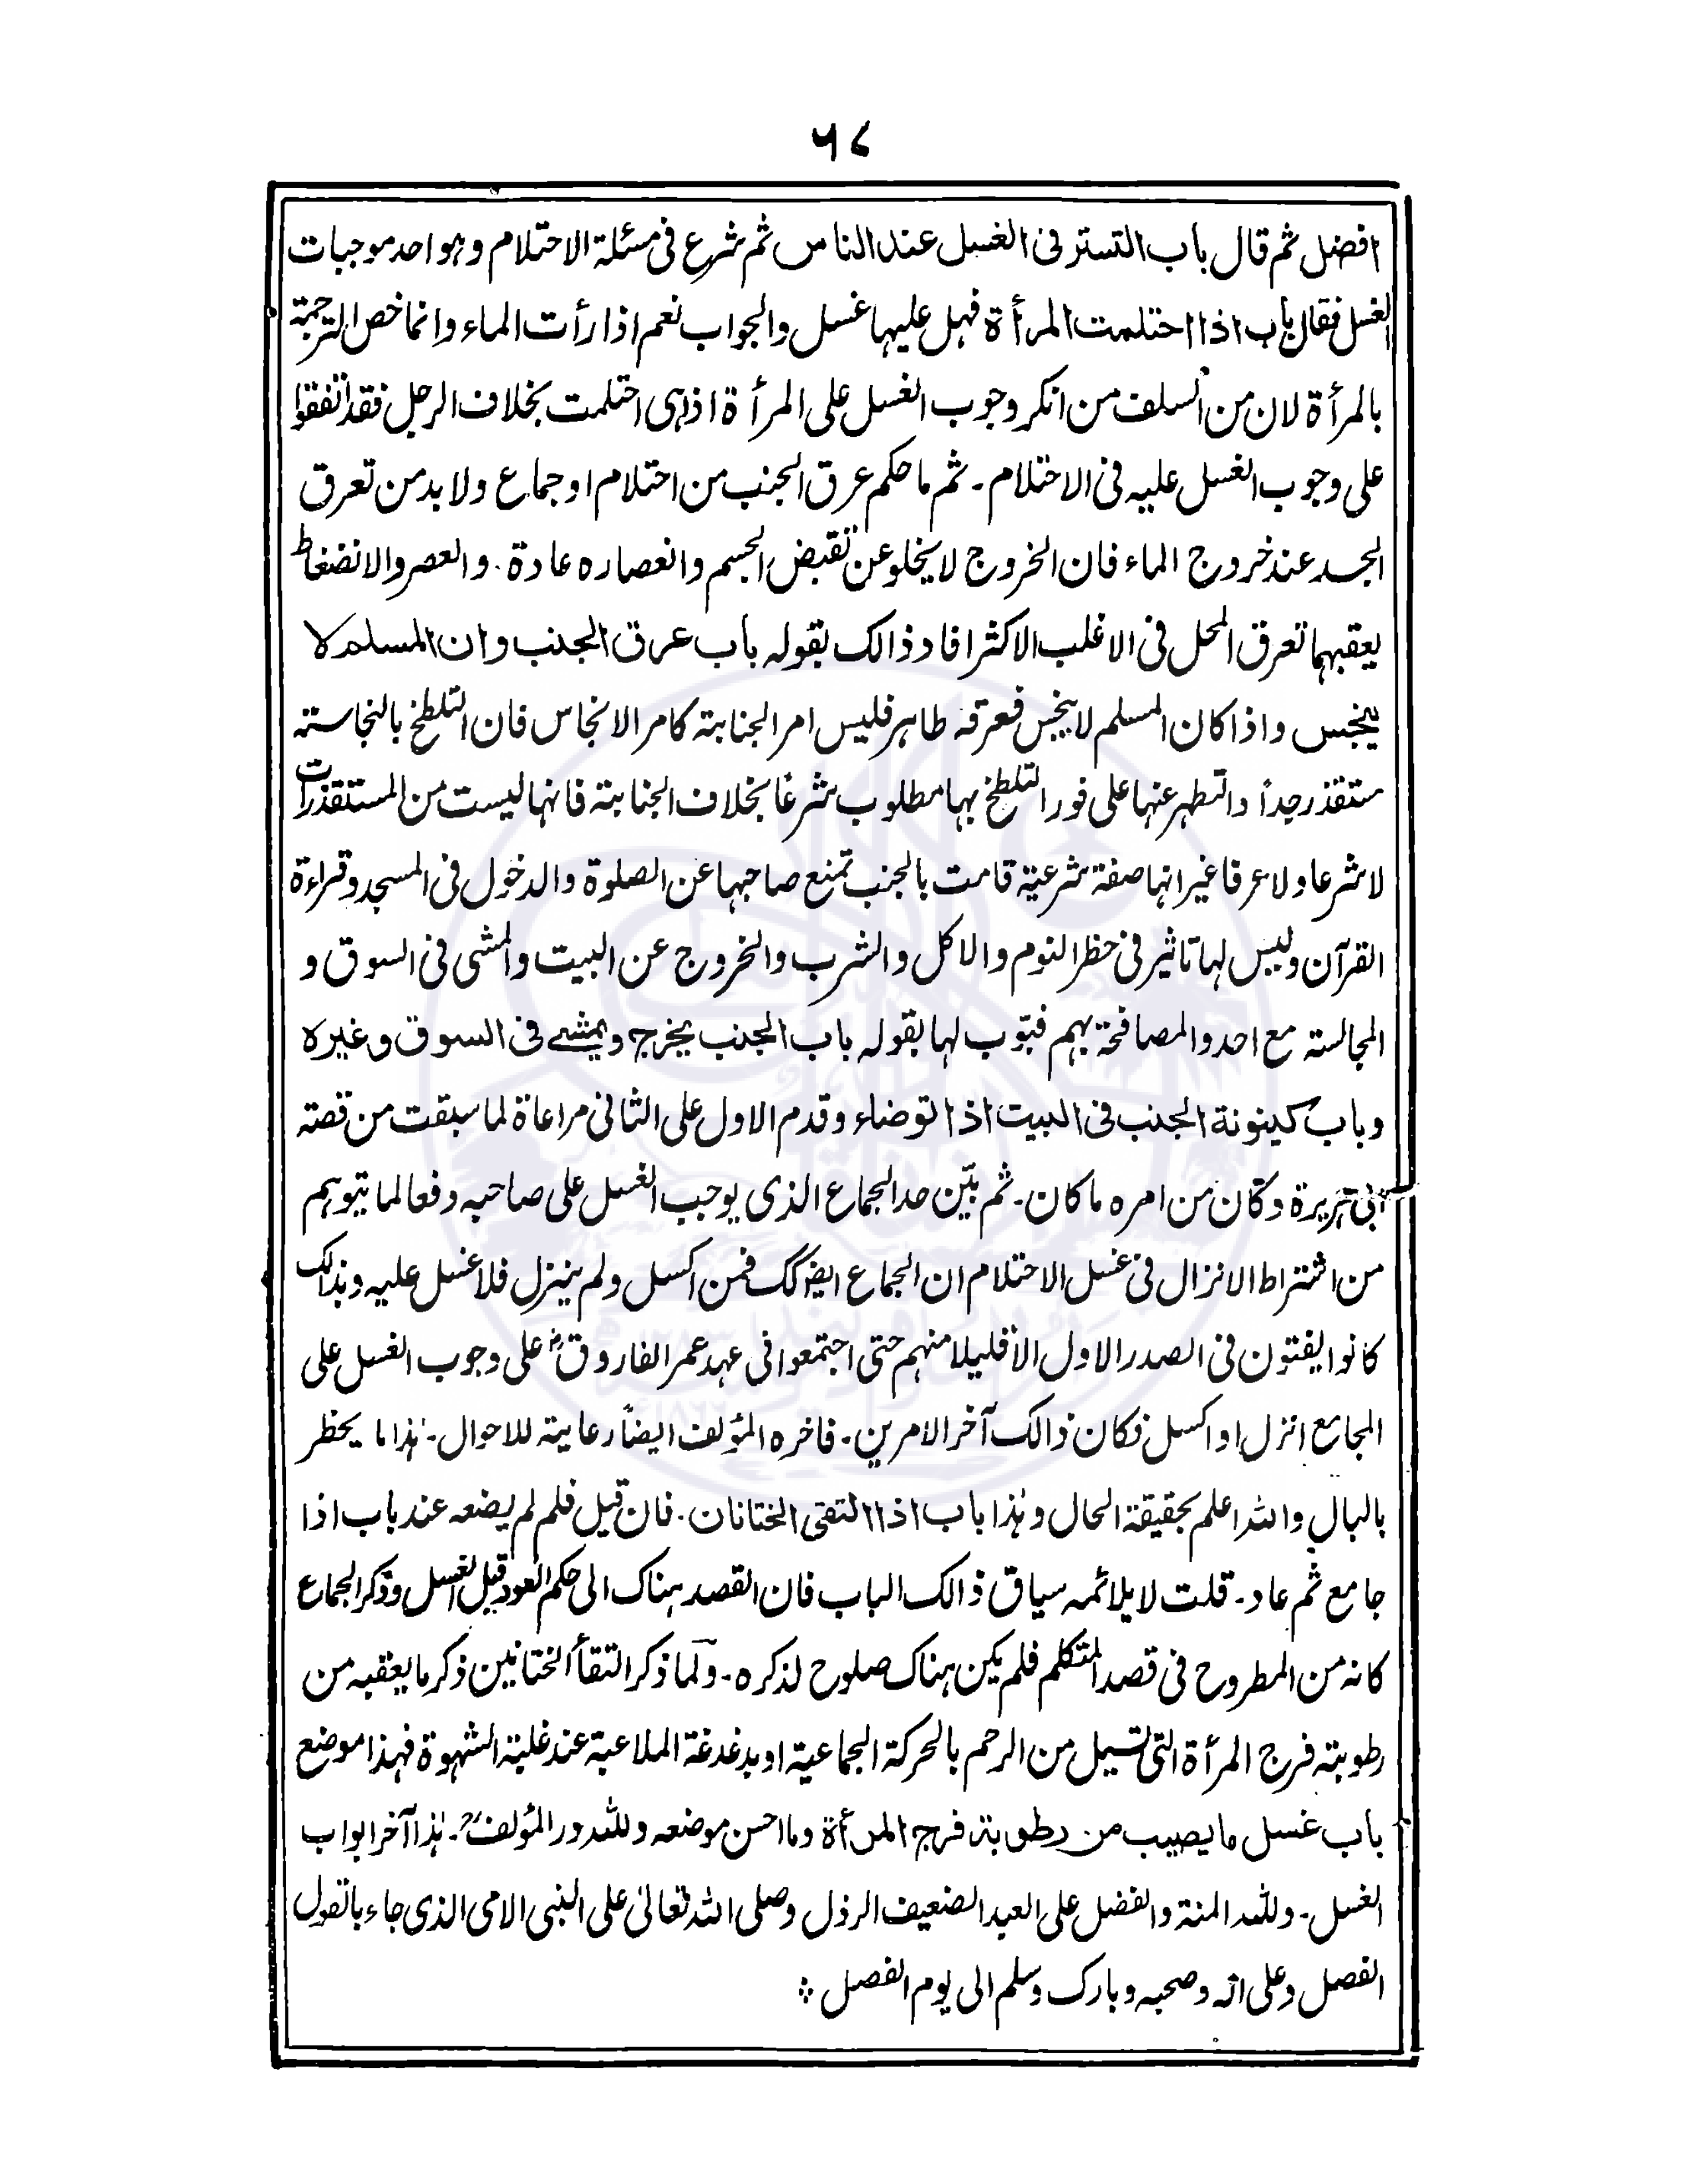 ٦٧
افضل ثم قال باب التستر فى الغسل عند الناس ثم شرع فى مسئلة الاحتلام وهو احد موجبات
الغسل فقال باب اذا احتلمت المرأة فهل عليها غسل والجواب نعم اذا رأت الماء وانما خص الترجمة
بالمرأة لان من السلف من انكر وجوب الغسل على المرأة اذا هى احتلمت بخلاف الرجل فقد اتفقوا
على وجوب الغسل عليه فى الاحتلام ۔ ثم ما حكم عرق الجنب من احتلام او جماع ولا بد من تعرق
الجسد عند خروج الماء فان الخروج لا يخلو عن تقبض الجسم وانعصاره عادة ۔ والعصر والانضغاط
يعقبهما تعرق المحل فى الاغلب الاكثر افاد ذالك بقوله باب عرق الجنب وان المسلم لا
ينجس واذا كان المسلم لا ينجس فعرقه طاهر فليس امر الجنابة كامر الانجاس فان التلطخ بالنجاسة
مستقذر جداً والتطهر عنها على فور التلطخ بها مطلوب شرعًا بخلاف الجنابة فانها ليست من المستقذرات
لا شرعا ولا عرفا غير انها صفة شرعية قامت بالجنب تمنع صاحبها عن الصلوة والدخول فى المسجد وقراءة
القرآن وليس لها تاثير فى حظر النوم والاكل والشرب والخروج عن البيت والمشى فى السوق و
المجالسة مع احد والمصافحة بهم فبوّب لها بقوله باب الجنب يخرج ويمشى فى السوق وغيره
وباب كينونة الجنب فى البيت اذا توضاء وقدم الاول على الثانى مراعاة لما سبقت من قصة
ابى هريرة وكان من امره ما كان ۔ ثم بيّن حد الجماع الذى يوجب الغسل على صاحبه دفعا لما يتوهم
من اشتراط الانزال فى غسل الاحتلام ان الجماع ايضا كك فمن اكسل ولم ينزل فلا غسل عليه وبذالك
كانوا يفتون فى الصدر الاول الا قليلا منهم حتى اجتمعوا فى عهد عمر الفاروق ؓ على وجوب الغسل على
المجامع انزل او اكسل فكان ذالك آخر الامرين ۔ فاخره المؤلف ايضاً رعاية للاحوال ۔ هٰذا ما يخطر
بالبال والله اعلم بحقيقة الحال وهٰذا باب اذا التقى الختانان ۔ فان قيل فلم لم يضعه عند باب اذا
جامع ثم عاد ۔ قلت لا يلائمه سياق ذالك الباب فان القصد هناك الى حكم العود قبل الغسل وذكر الجماع
كانه من المطروح فى قصد المتكلم فلم يكن هناك صلوح لذكره ۔ ولما ذكر التقأ الختانين ذكر ما يعقبه من
رطوبته فرج المرأة التى تسيل من الرحم بالحركة الجماعية او بدغدغة الملاعبة عند غلبة الشهوة فهذا موضع
باب غسل ما يصيب من رطوبة فرج المرأة وما احسن موضعه ولله در المؤلف ؒ ۔ هٰذا آخر ابواب
الغسل ۔ ولله المنة والفضل على العبد الضعيف الرذل وصلى الله تعالىٰ على النبى الامى الذى جاء بالقول
الفصل وعلى اله وصحبه وبارك وسلم الى يوم الفصل ۞